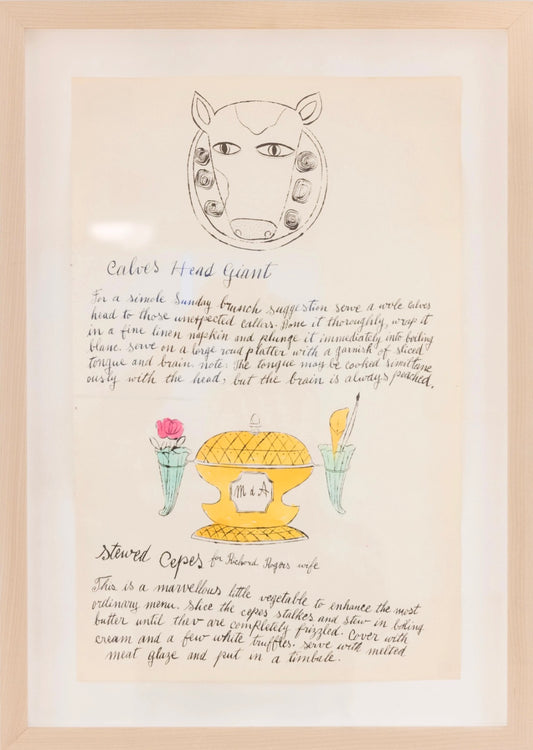 Calves Head Giant
For a simole Sunday brunch suggestion serve a wole calves
head to those unexpected callers. Bone it thoroughly, wrap it
in a fine linen napkin and plunge it immediately into boiling
blanc. serve on a large roud platter with a garnish of sliced
tongue and brain. note: The tongue may be cooked simultane
ously with the head, but the brain is always poached.
M d A
Stewed Cepes for Richard Rogers wife
This is a marvellous little vegetable to enhance the most
ordinary menu. Slice the cepes stalkes and stew in boiling
butter until thev are completly frizzled. Cover with
cream and a few white truffles. serve with melted
meat glaze and put in a timbale.